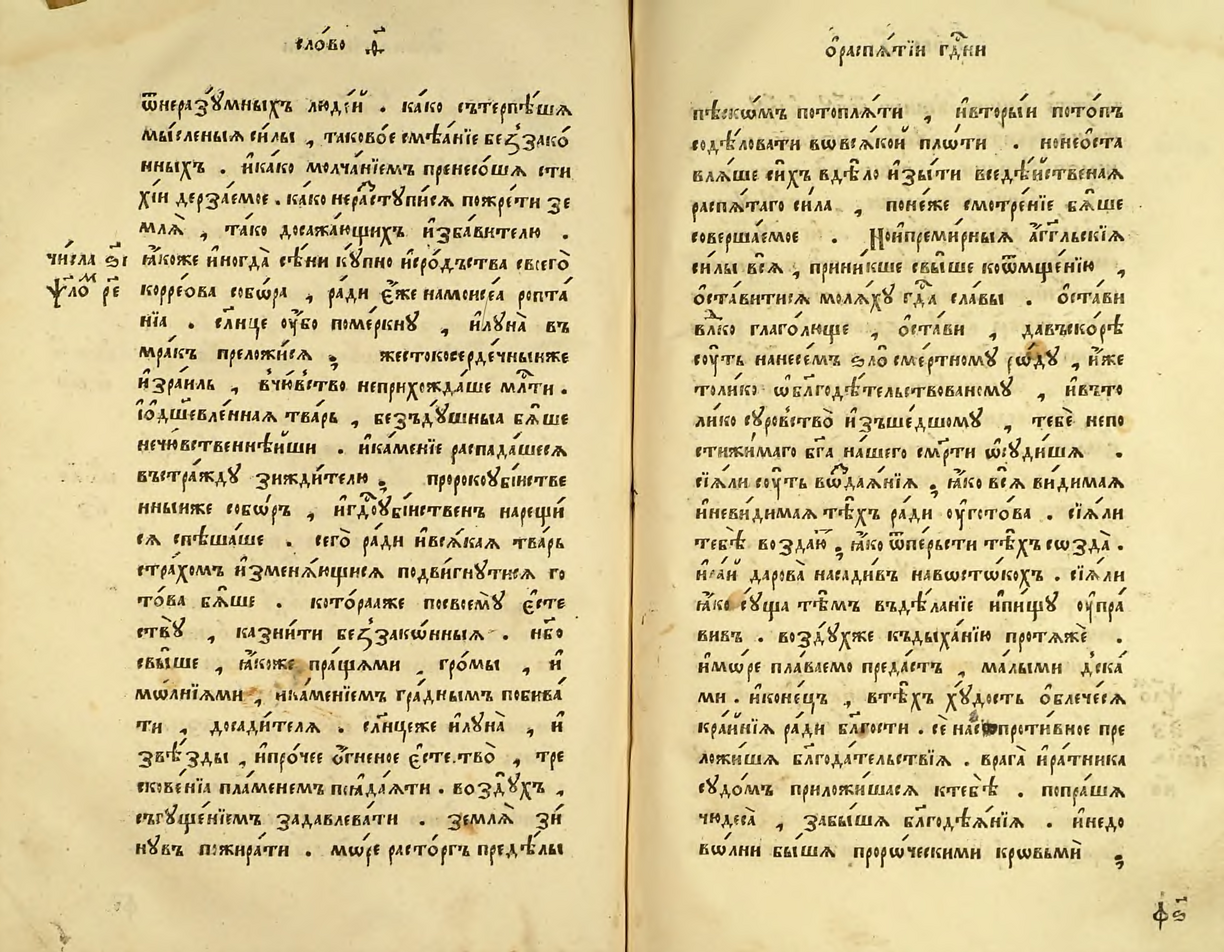 сло́во ѳ҃
ѿнеразꙋ́мныхъ люде́й . ка́ко сътерпѣ́шѧ
мы́сленыѧ си́лы , таково́е смѣѧ́нїе беꙁꙁако́
нныхъ . и҆ка́ко молча́нїемъ пренесо́шѧ сти
хі́и дерза́емое . ка́ко нера́стꙋписѧ пожре́ти зе
млѧ̀ , та́ко досажа́ющихъ и҆зба́вителю .
чи́сла ѕ҃і
ꙗ҆́коже и҆ногда̀ сѣ́ни кꙋ́пно и҆сро́дъства своего̀
ѱало́м ре
корре́ова собѡ́ра , ра́ди є҆́же намоисе́а ропта́
нїа . сл҃нце ѹ҆́бо поме́ркнꙋ , и҆лꙋна̀ въ
мра́къ преложи́сѧ , жестокосерде́чныиже
и҆зра́иль , вчю́вство неприхожда́ше мл҃ти .
і҆ѻ҆дш҃евле́ннаѧ тва́рь , безъдꙋ́шныа бѧ́ше
нечю́вственнѣйши . и҆ка́менїе распада́шеесѧ
въстра́ждꙋ зижди́телю , пророкоꙋбі́истве
нныиже собѡ́ръ , и҆гд҃оꙋбі́иственъ нарещи́
сѧ спѣ́шаше . сего̀ ра́ди и҆всѧ́каѧ тва́рь
стра́хомъ и҆змѣнѧ́ющисѧ подви́гнꙋтисѧ го
то́ва бѧ́ше . кото́рааже посвоемꙋ̀ є҆сте
ствꙋ̀ , казни́ти беззако́нныѧ . и҆́бо
свы́ше , ꙗ҆́коже пра́щѧми , гро́мы , и҆
мѡ́лнїѧми , и҆ка́менїемъ гра́днымъ побива́
ти , досади́телѧ . сл҃нцеже и҆лꙋна̀ , и҆
звѣ́зды , и҆про́чее ѻ҆́гненое є҆стество̀ , тре
скове́нїа пла́менемъ поѧда́ѧти . во́здꙋхъ ,
съгꙋще́нїемъ задавлева́ти . землѧ̀ зи
нꙋ́въ пожира́ти . мѡ́ре расто́ргъ предѣ́лы
ѻ҆распѧ́тїи гд҃ни
пѣско́мъ потоплѧ́ти , и҆вторы́и пото́пъ
содѣ́ловати вѡвсѧ́кой пло́ти . ноне҆ѡ҆ста
влѧ́ше си́хъ вдѣ́ло и҆зы́ти вседѣ́йственаѧ
распѧ́таго си́ла , поне́же смотре́нїе бѧ́ше
соверша́емое . Но́ипреми́рныѧ а҆́гг҃льскїѧ
си́лы всѧ̀ , прини́кше свы́ше коѿмще́нїю ,
ѻ҆ста́витисѧ молѧ́хꙋ гд҃а сла́вы . ѻ҆ста́ви
влⷣко глаго́люще , ѻ҆ста́ви , да́въско́рѣ
сꙋ́ть нанесе́мъ ѕло̀ сме́ртномꙋ ро́дꙋ , и҆́же
толи́ко ѡ҆благодѣ́тельствованомꙋ , и҆въто
ли́ко сꙋро́вство̀ и҆зъше́дшомꙋ , тебѐ непо
стижи́маго бг҃а на́шего сме́рти ѡ҆сꙋди́шѧ .
сїѧ́ли сꙋ́ть вѡздаѧ́нїѧ , ꙗ҆́ко всѧ̀ ви́димаѧ
и҆неви́димаѧ тѣ́хъ ра́ди ѹ҆гото́ва . сїѧ́ли
тебѣ̀ воздаю̀ , ꙗ҆́ко ѿпе́рьсти тѣ́хъ созда̀ .
и҆ра́й дарова̀ насади́въ навѡсто́кохъ . сїѧ́ли
ꙗ҆́ко сꙋ́ща тѣ́мъ въдѣ́ланїе и҆пи́щꙋ ѹ҆пра́
вивъ . во́здꙋхже къдыха́нїю протѧжѐ .
и҆мѡ́ре пла́ваемо преда́стъ , ма́лыми дска́
ми . и҆коне́цъ , втѣ́хъ хꙋ́дость ѻ҆блече́сѧ
кра́йнїѧ ра́ди бл҃гости . сѐ насопроти́вное пре
ложи́шѧ бл҃года́тельствїѧ . врага̀ и҆ра́тника
сꙋдо́мъ приложи́шасѧ ктебѣ̀ . попра́шѧ
чюдеса̀ , забы́шѧ бл҃годѣѧ́нїѧ . и҆недо
вѡ́лни бы́шѧ проро́ческими кровьмѝ ,
ф҃ѕі